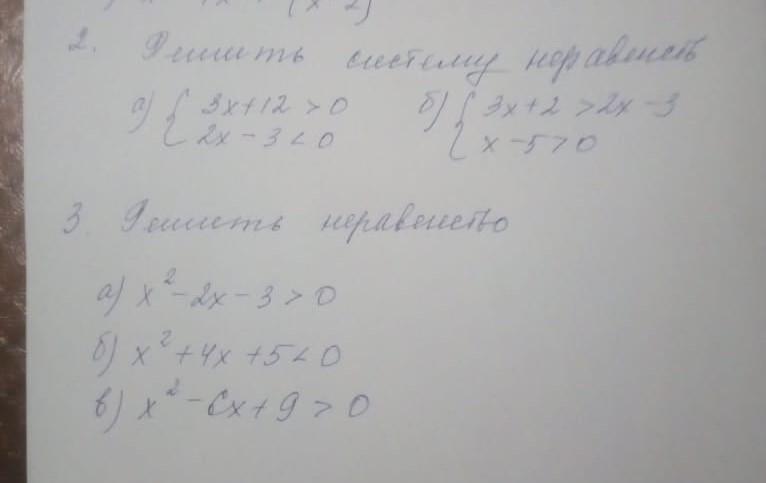 2. Решить систему неравенств
а) { 3x+12 > 0 б) { 3x+2 > 2x-3
2x-3 < 0 x-5 > 0
3. Решить неравенство
а) x²-2x-3 > 0
б) x²+4x+5 < 0
в) x²-6x+9 > 0